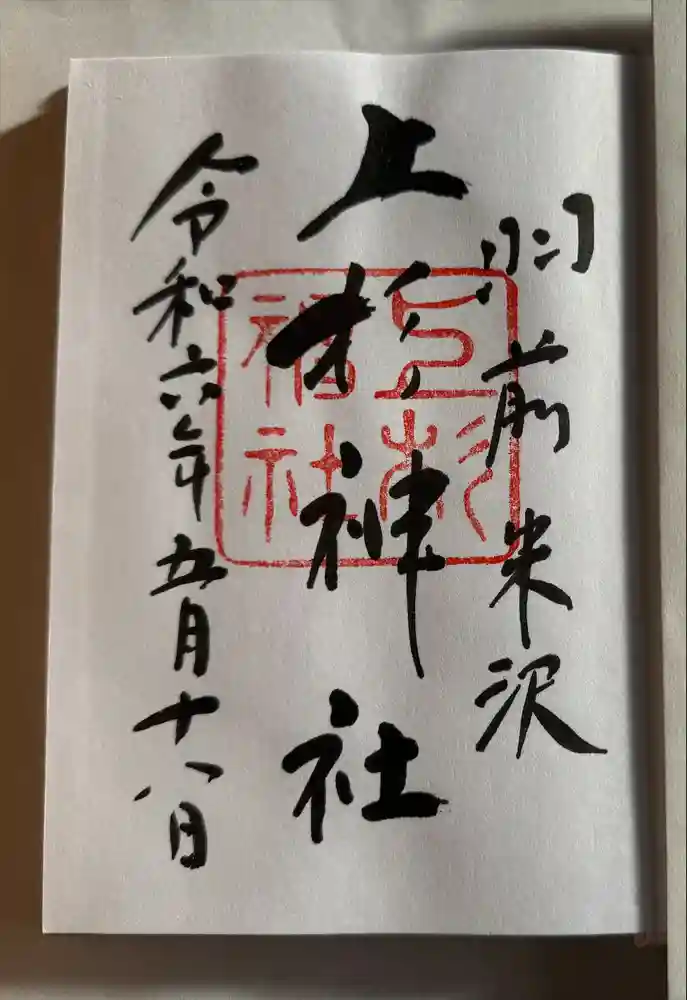 羽前米沢
上杉神社
令和六年五月十八日
上杉
神社